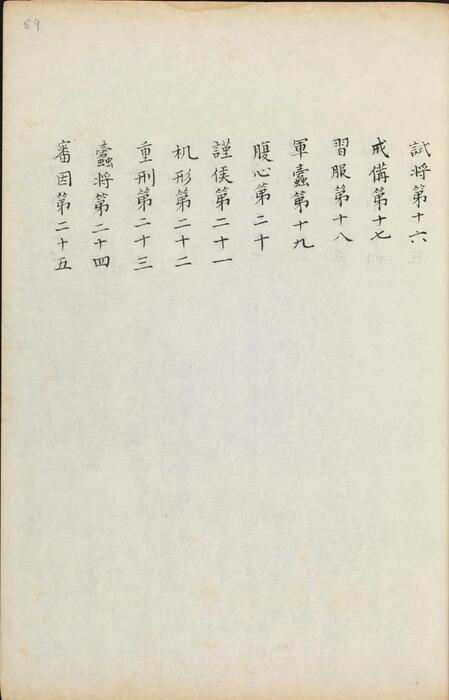 試将第十六
戒備第十七
習服第十八
軍蠹第十九
腹心第二十
謹侯第二十一
机形第二十二
重刑第二十三
蠹将第二十四
審因第二十五
59